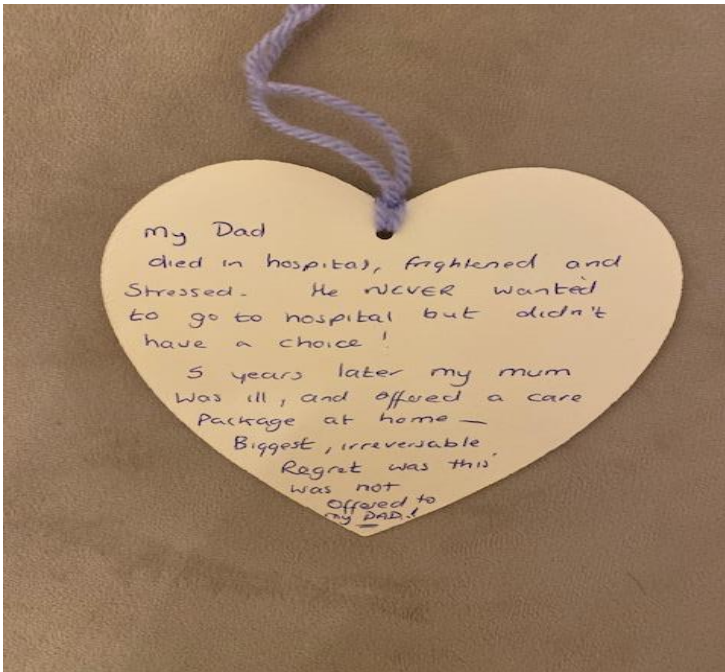 My Dad
died in hospital, frightened and
Stressed. He NEVER wanted
to go to hospital but didn't
have a choice!
5 years later my mum
was ill, and offered a care
package at home —
Biggest, irreversable
Regret was this
was not
offered to
my DAD!